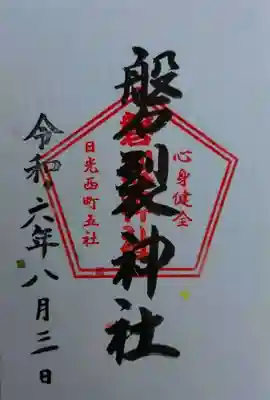 心身健全
磐裂神社
日光西町五社
令和六年八月三日